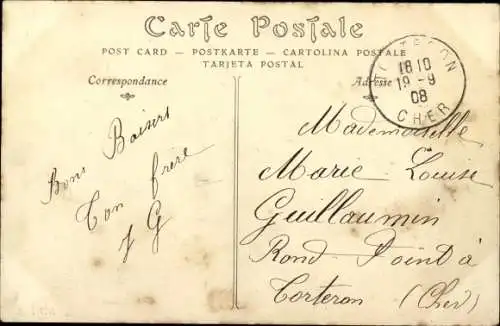 Carte Postale
POST CARD — POSTKARTE — CARTOLINA POSTALE
TARJETA POSTAL
Correspondance
Adresse
18 10
19 - 9
08
CHER
Bons Baisers
Ton frère
J G
Mademoiselle
Marie Louise
Guillaumin
Rond-Point à
Torteron (Cher)